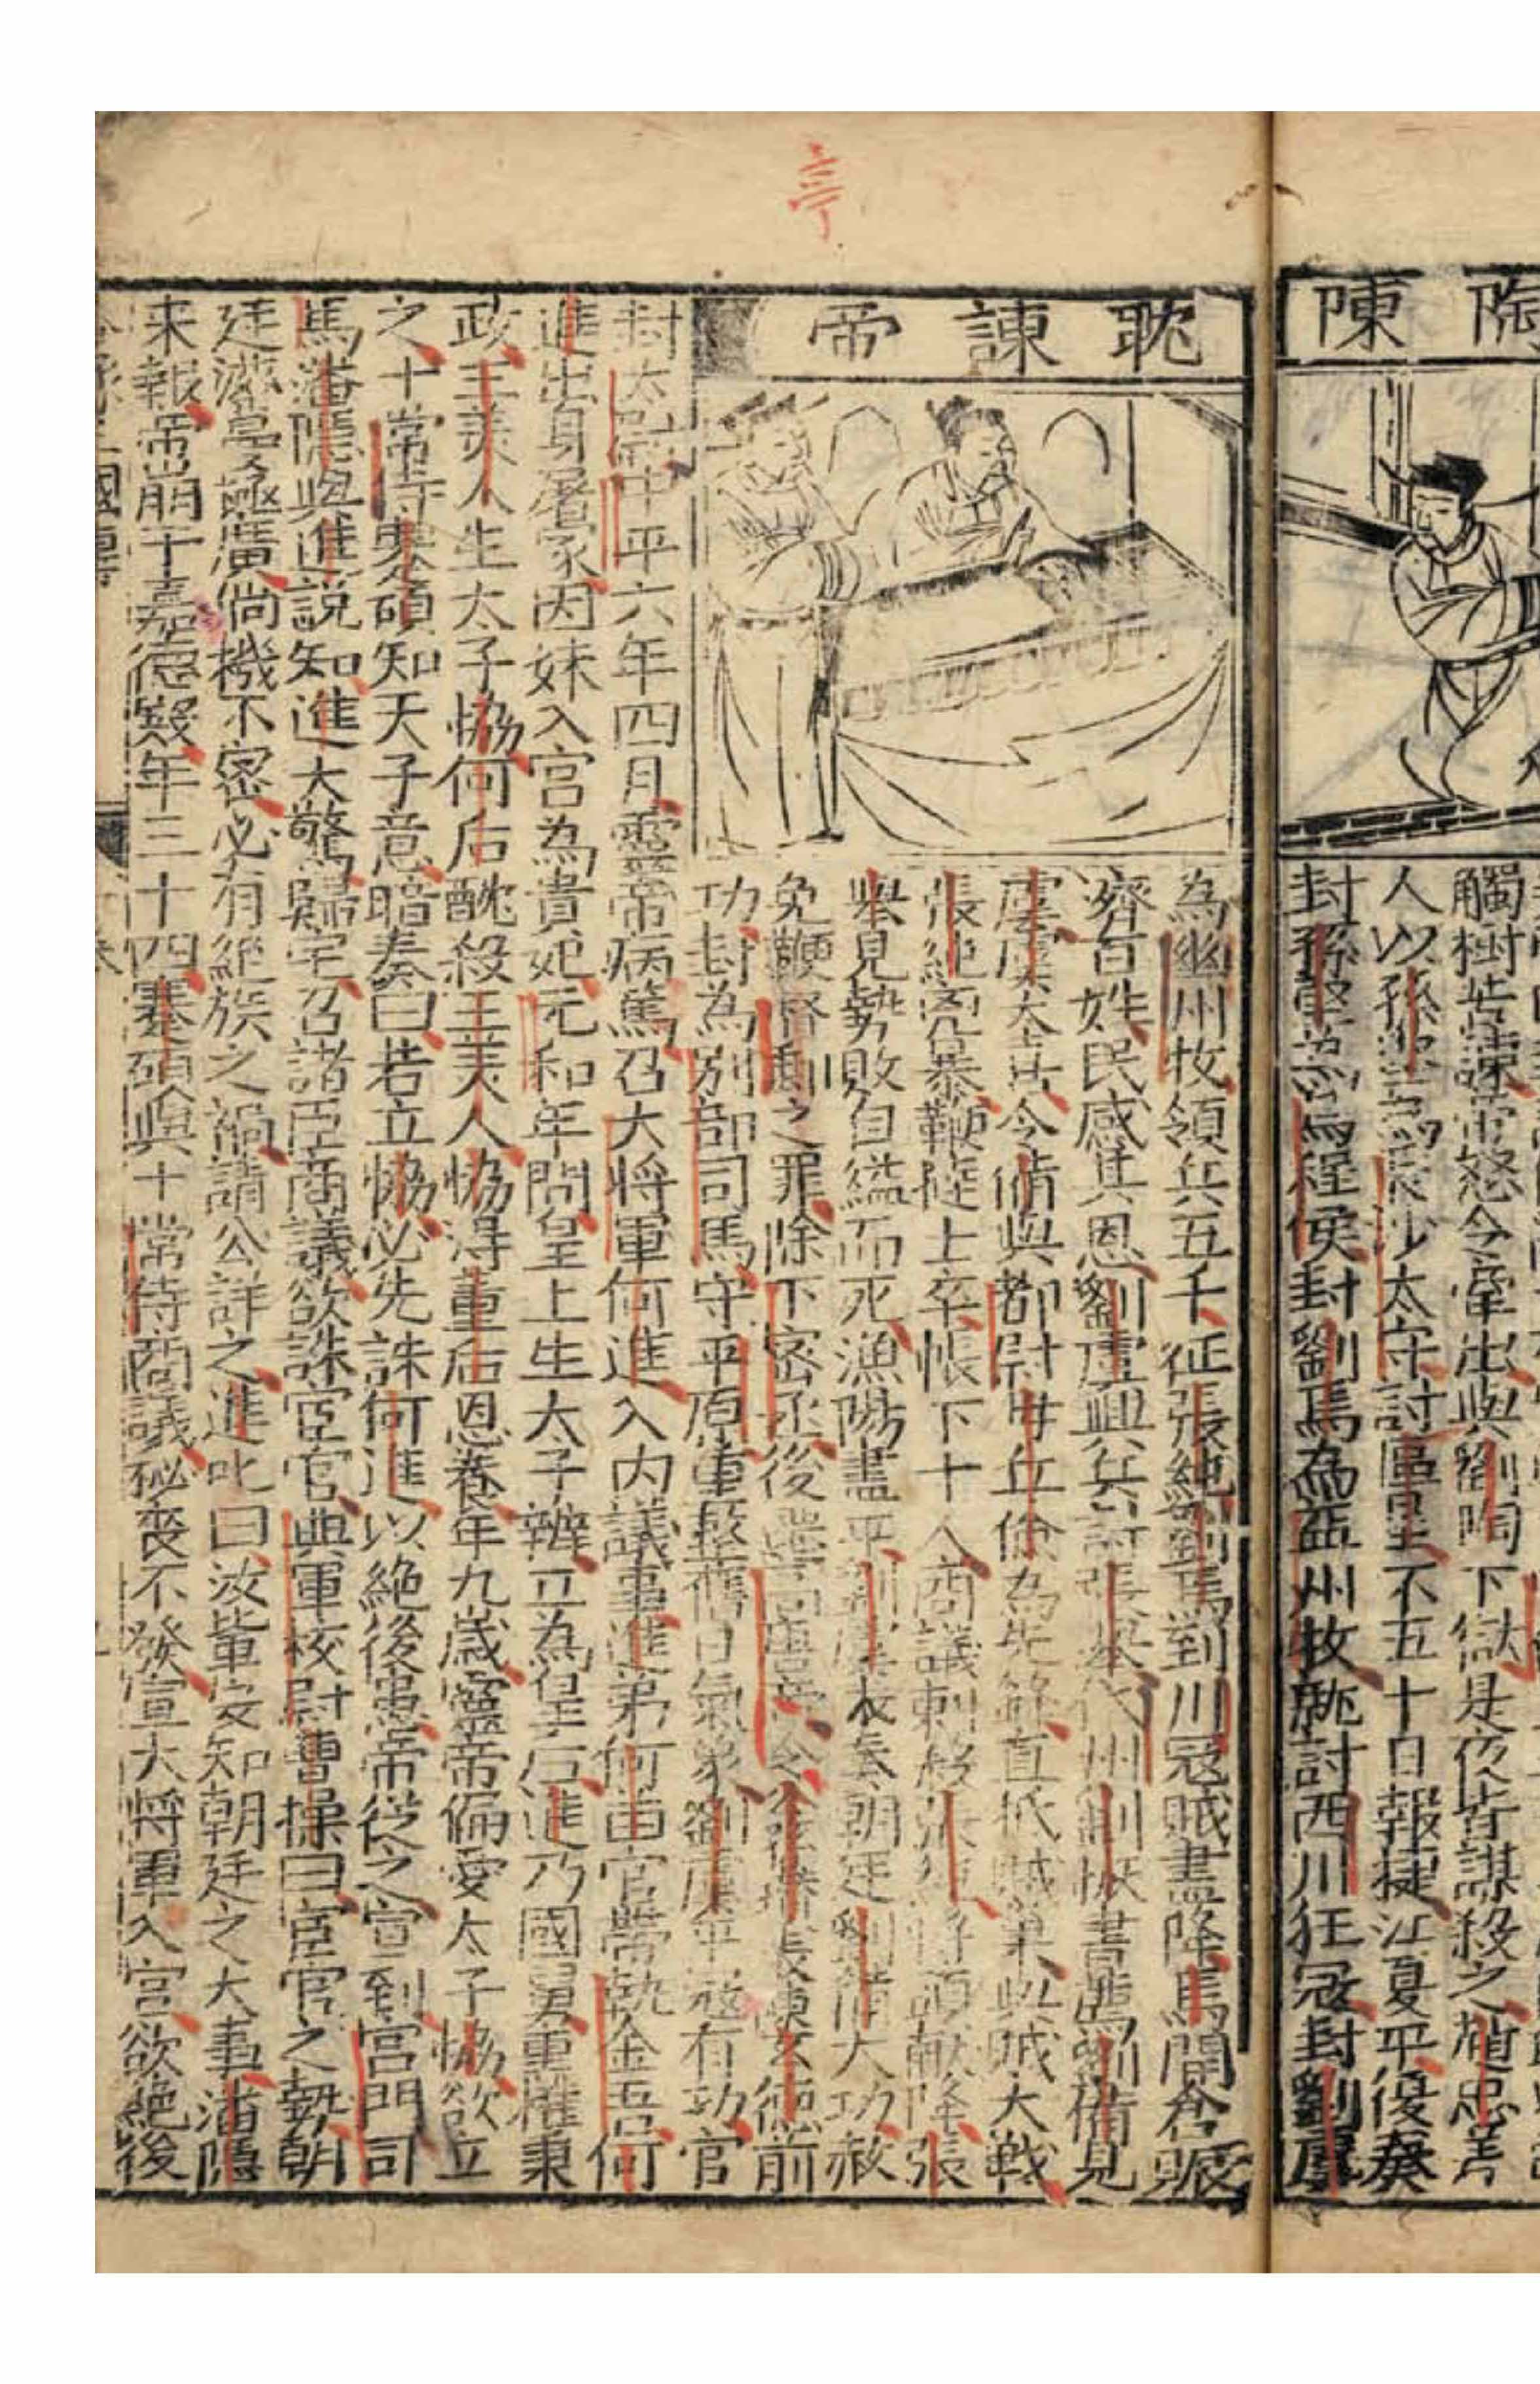 陶陳
觸樹苦諫帝怒令牽出與劉陶下獄是夜皆謀殺之趙忠等
人以孫堅為長沙太守討區星不五十日報捷江夏平後奏
封孫堅為烏程侯封劉焉為益州牧現討西川狂寇封劉虞
耽諫帝
為幽州牧領兵五千征張純劉焉到川寇賊盡降焉開倉賑
濟百姓民感其恩劉虞興兵討張舉代州劉恢書薦劉備見
虞虞大喜令備與都尉毋丘儉為先鋒直抵賊巢與賊大戰
張純 暴鞭撻士卒帳下十人商議刺殺張純將頭獻降張
舉見勢敗自縊而死漁陽盡平劉虞表奏朝廷劉備大功赦
免鞭督郵之罪除下密丞後 高唐尉令公孫瓚表陳玄德前
功封為別部司馬守平原重整舊日氣象劉虞平寇有功官
封太尉中平六年四月靈帝病篤召大將軍何進入內議事進弟何苗官帶執金吾何
進出身屠家因妹入宮為貴妃元和年間皇上生太子辨立為皇后進乃國舅重權秉
政王美人生太子協何后醜殺王美人協得董后恩養年九歲靈帝偏愛太子協欲立
之十常侍蹇碩知天子意暗奏曰若立協必先誅何進以絕後患帝從之宣到宮門司
馬潘隱與進說知進大驚歸宅召諸臣商議欲誅宦官典軍校尉曹操曰宦官之勢朝
廷滋蔓極廣倘機不密必有絕族之禍請公詳之進叱曰汝輩安知朝廷之大事潘隱
来報帝崩于嘉德殿年三十四蹇碩與十常侍商議秘喪不發宣大將軍入宮欲絕後
三國傳
亭